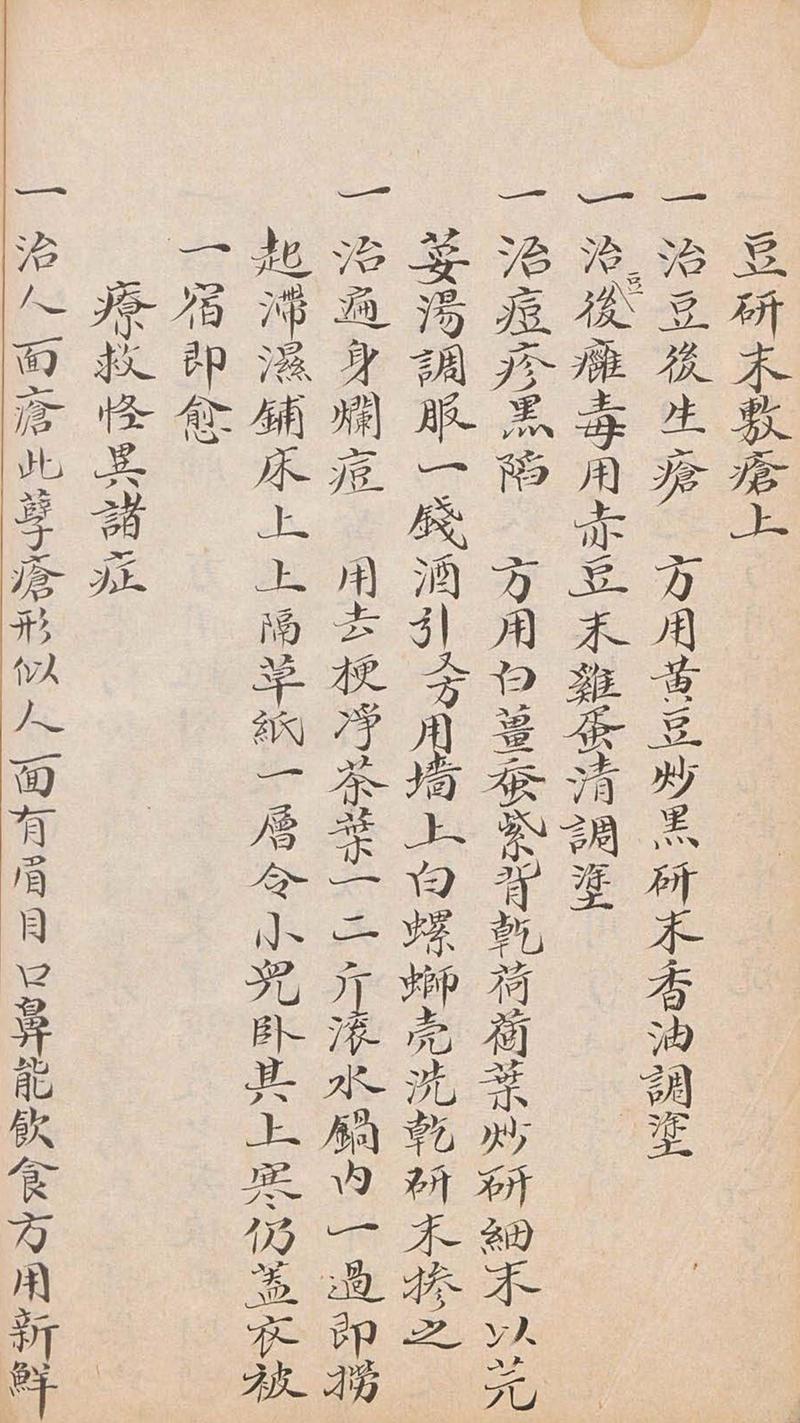 豆研末敷瘡上
一治豆後生瘡 方用黄豆炒黒研末香油調塗
一治豆後癰毒用赤豆末雞蛋清調塗
一治痘疹黒陷 方用白薑蚕紫背乾荷葉炒研細末以芫
荽湯調服一錢酒引又方用墻上白螺螄壳洗乾研末摻之
一治遍身爛痘 用去梗凈茶葉一二斤滚水鍋内一過即撈
起滯濕鋪床上上隔草紙一層令小兒卧其上寒仍蓋衣被
一宿即愈
療救怪異諸症
一治人面瘡此孽瘡形似人面有眉目口鼻能飲食方用新鮮